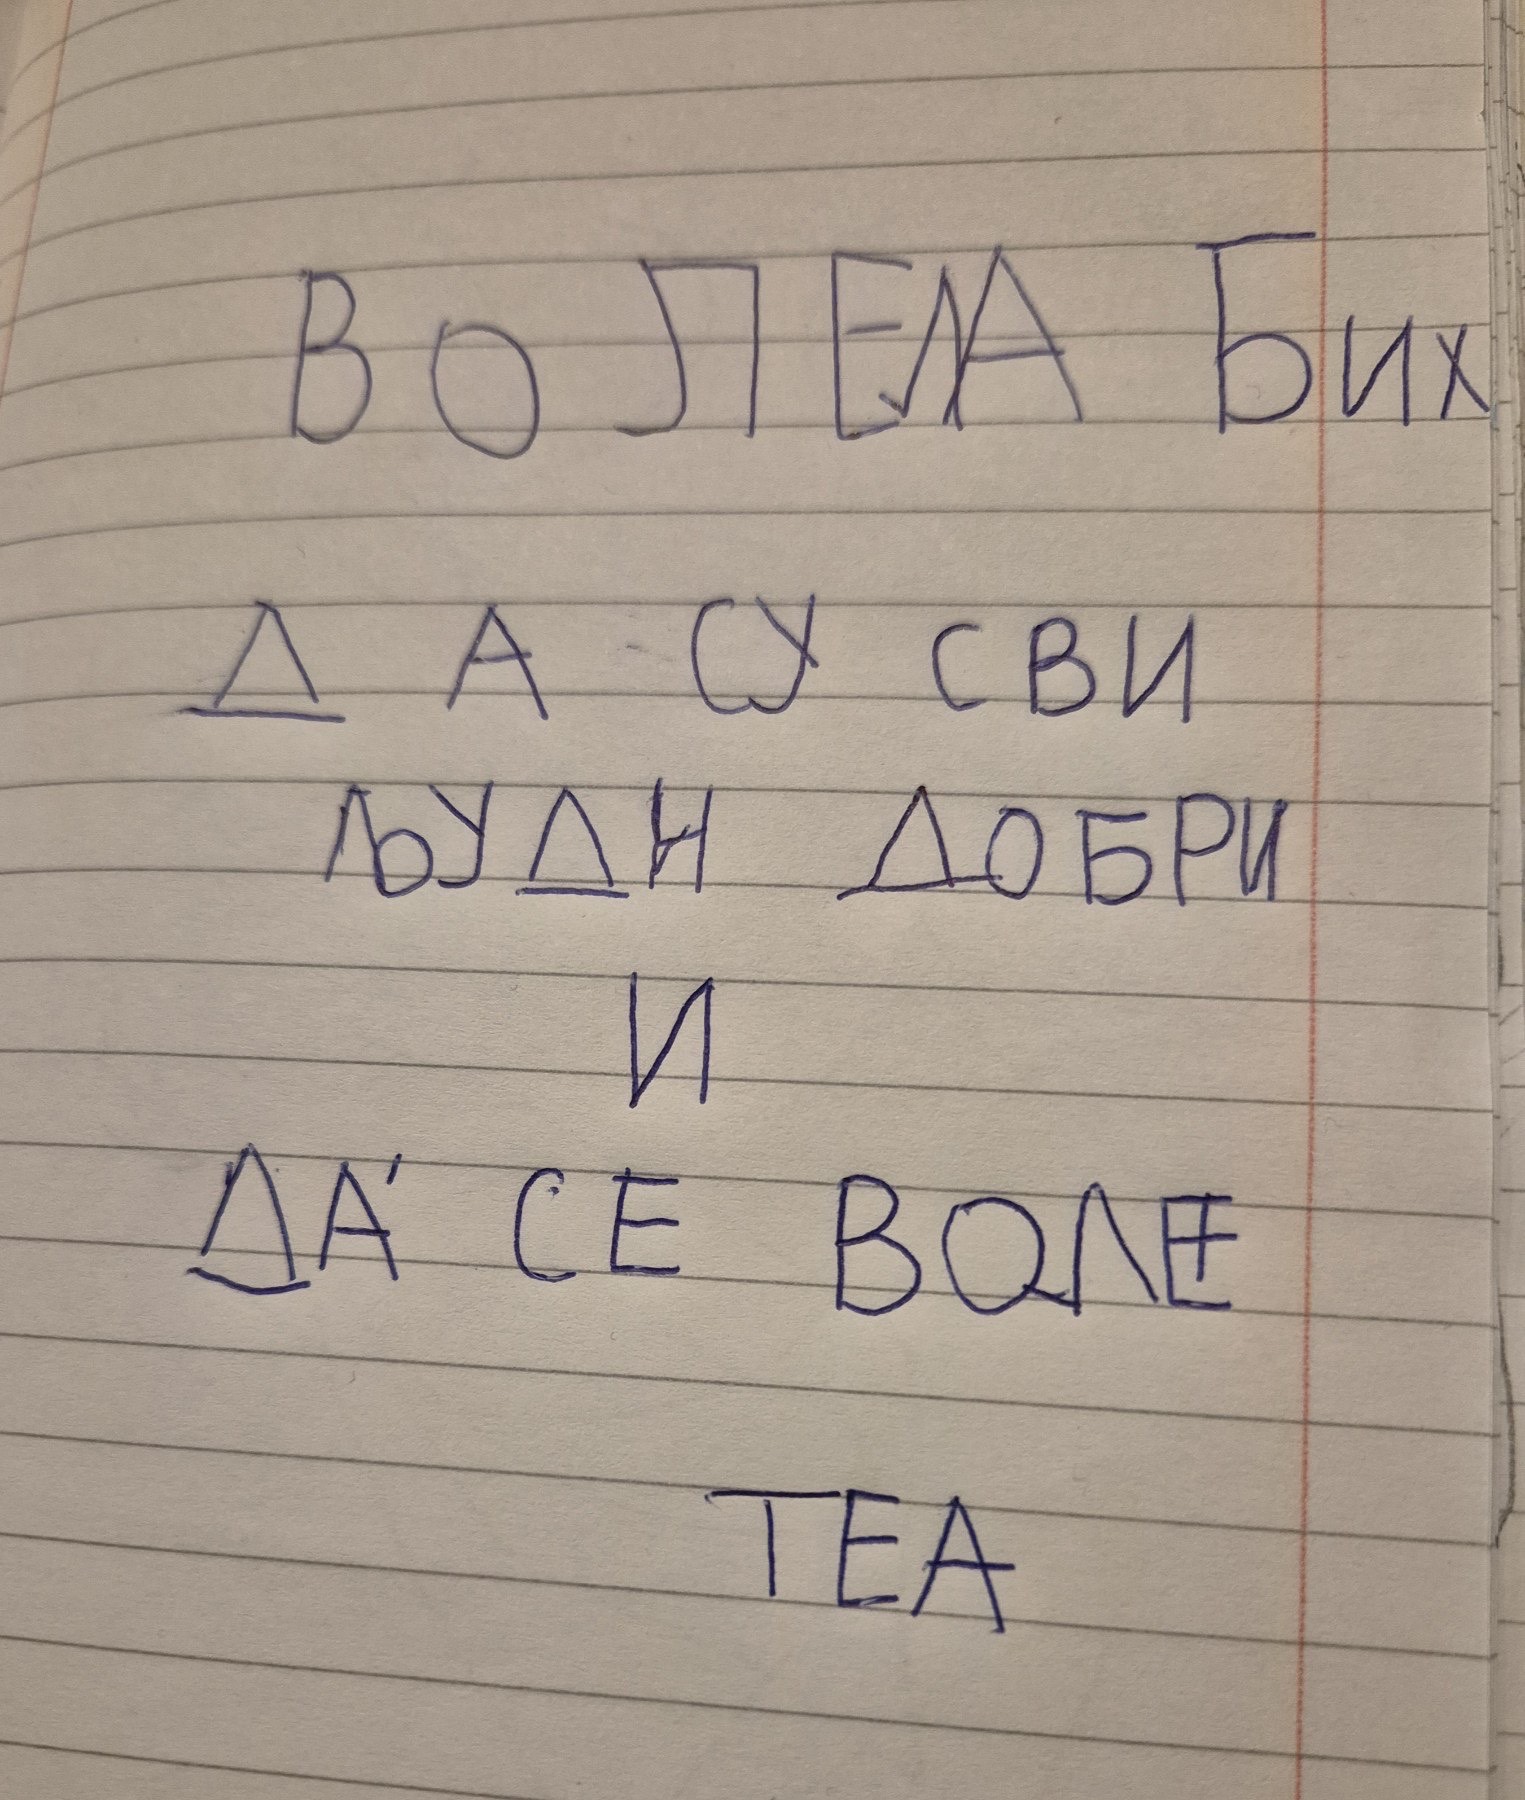 ВОЛЕЛА Бих
ДА СУ СВИ
ЉУДИ ДОБРИ
И
ДА СЕ ВОЛЕ
ТЕА